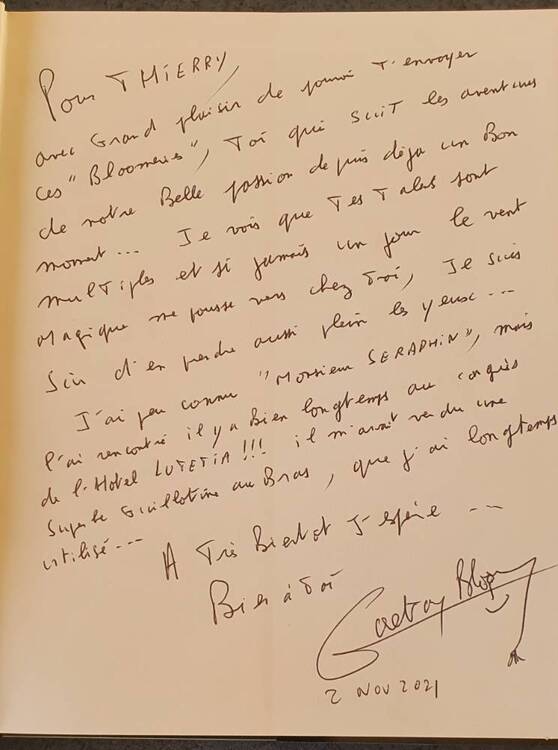 Pour THIERRY,
avec Grand plaisir de pouvoir T'envoyer
ces "Bloomeries", Toi qui suit les aventures
de notre Belle passion depuis déja un Bon
moment... Je vois que Tes Talents sont
multiples et si jamais un jour le vent
Magique me pousse vers chez Toi, Je suis
Sûr d'en prendre aussi plein les yeux...
J'ai peu connu "Monsieur SERAPHIN", mais
l'ai rencontré il y a Bien longtemps au congrès
de l'Hotel LUTETIA!!! il m'avait vendu une
Superbe Guillotine au Bras, que j'ai longtemps
utilisé...
A Très Bientot J'espère ...
Bien à Toi
Gaetan Bloom
2 NOV 2021